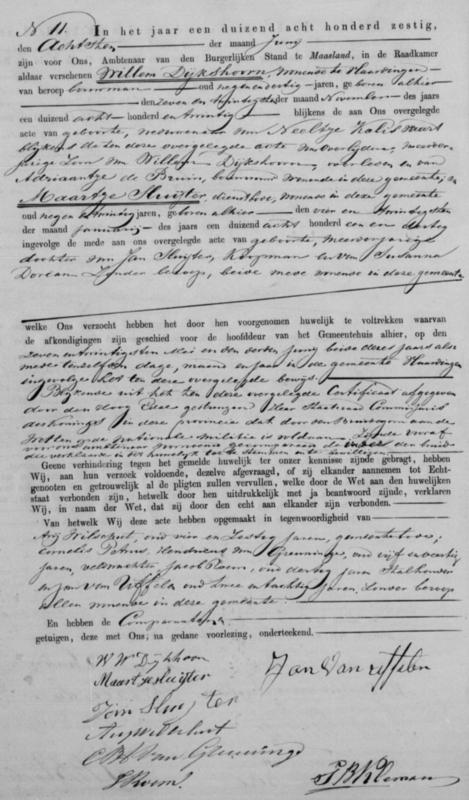 N 11. In het jaar een duizend acht honderd zestig,
den Achtsten der maand Junij
zijn voor Ons, Ambtenaar van den Burgerlijken Stand te Maasland, in de Raadkamer
aldaar verschenen Willem Dijkshoorn, wonende te Vlaardingen
van beroep bouwman oud negenendertig jaren, geboren alhier
den zeven en twintigsten der maand November des jaars
een duizend acht honderd en twintig blijkens de aan Ons overgelegde
acte van geboorte, weduwenaar van Neeltje Kalis
blijkens de ten deze overgelegde acte van overlijden, meerder-
jarige Zoon van Willem Dijkshoorn, overleden en van
Adriaantje de Bruin, bouwvrouw wonende in deze gemeente en
Maartje Sluijter, dienstbode, wonende in deze gemeente
oud negen en twintig jaren, geboren alhier den vier en twintigsten
der maand Januarij des jaars een duizend acht honderd een en dertig
ingevolge het mede aan ons overgelegde acte van geboorte, meerderjarige
dochter van Jan Sluijter, Koopman en van Susanna
Zonder beroep, beide mede wonende in deze gemeente
welke Ons verzocht hebben het door hen voorgenomen huwelijk te voltrekken waarvan
de afkondigingen zijn geschied voor de hoofddeur van het Gemeentehuis alhier, op den
Zeven en twintigsten Mei en den derden Junij beide dezes jaars als
mede ten zelfden dage, maand en jaar in de gemeente Vlaardingen
ingevolge het ten deze overgelegde bewijs.
Blijkende uit het ten deze overgelegde Certificaat afgegeven
door den Heer Staatsraad Commissaris
des Konings in deze provincie dat door den Bruidegom aan de
Wetten op de Nationale Militie is voldaan
Geene verhindering tegen het gemelde huwelijk ter onzer kennisse zijnde gebragt, hebben
Wij, aan hun verzoek voldoende, dezelve afgevraagd, of zij elkander aannemen tot Echt-
genooten en getrouwelijk al de pligten zullen vervullen, welke door de Wet aan den huwelijken
staat verbonden zijn, hetwelk door hen uitdrukkelijk met ja beantwoord zijnde, verklaren
Wij, in naam der Wet, dat zij door den echt aan elkander zijn verbonden.
Van hetwelk Wij deze acte hebben opgemaakt in tegenwoordigheid van
Arij oud vier en Zestig jaren, gemeentebode;
Cornelis Petrus Hendricus van oud vijf en veertig
jaren, veldwachter, Jacob oud dertig jaren Stalhouder
en Jan van Uffelen oud twee en tachtig jaren, zonder beroep
allen wonende in deze gemeente.
En hebben de Comparanten
getuigen, deze met Ons, na gedane voorlezing, onderteekend.
W Wz Dijkshoorn
Maartje Sluijter
Jan van Uffelen
Jan Sluijter